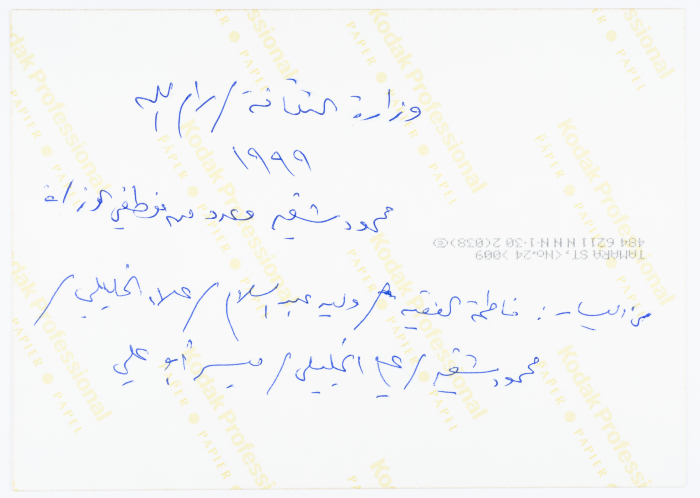 وزارة الثقافة / رام الله
١٩٩٩
محمود شقير وعدد من موظفي الوزارة
TAMARA ST. <No.24> 009
484 6211 N N N N-1-30 2(038)
من اليسار: فاطمة الفقيه / وليد عبد السلام / علاء الجليلي /
محمود شقير / علي الجليلي / ميسر أبو علي
Kodak Professional
PAPER PAPEL